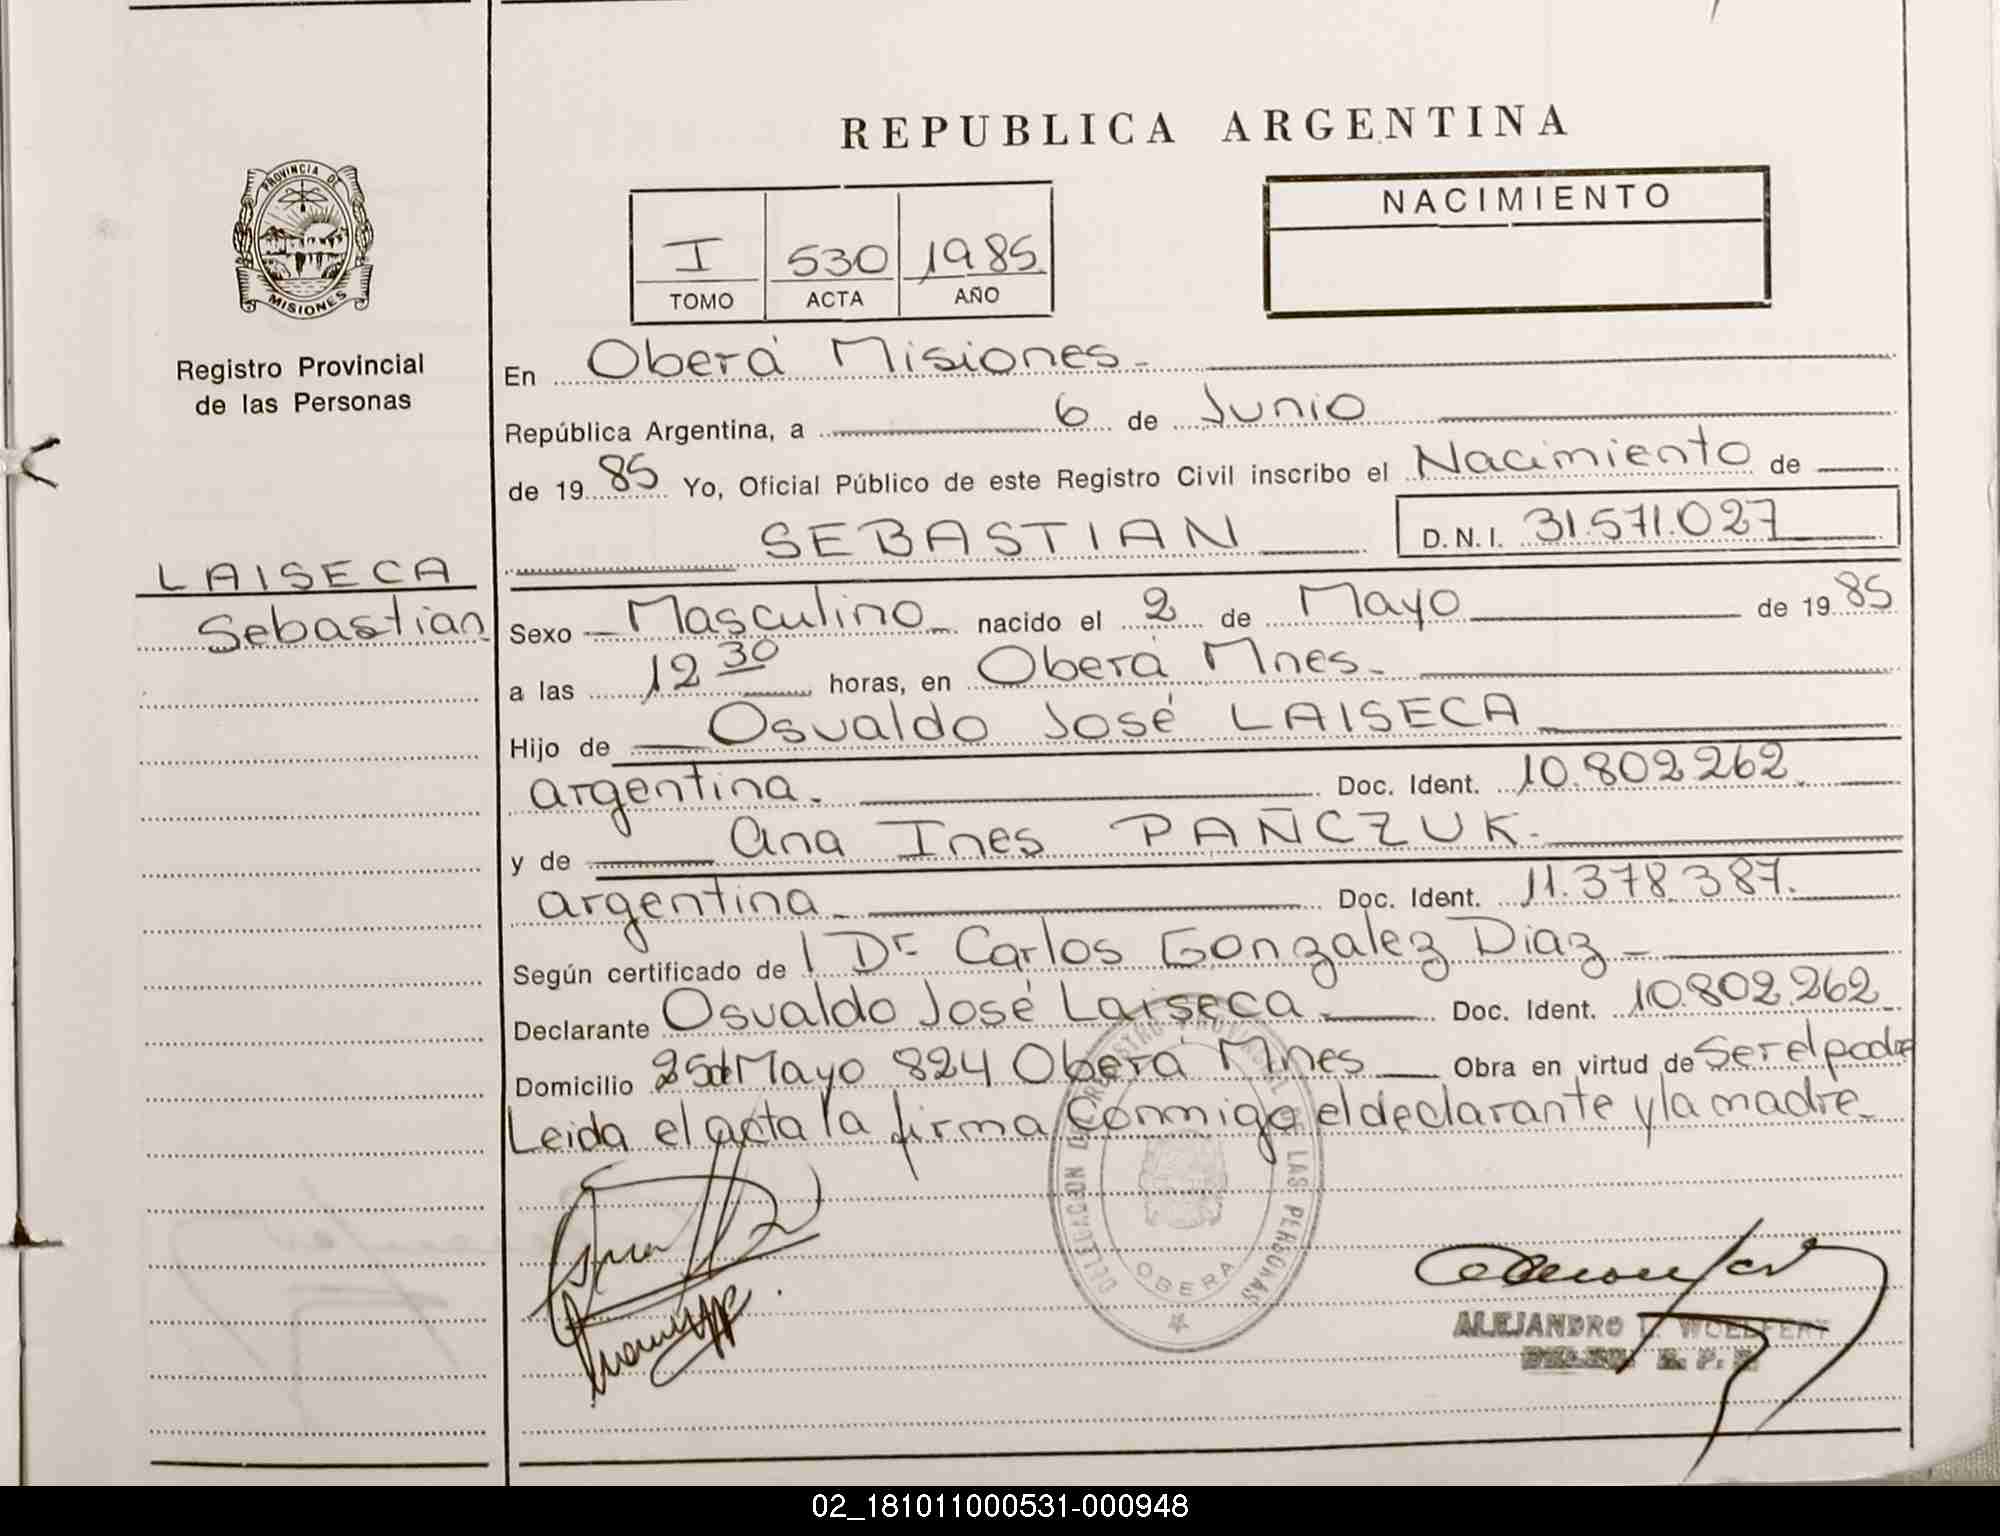 REPUBLICA ARGENTINA
PROVINCIA DE
MISIONES
Registro Provincial
de las Personas
I 530 1985
TOMO ACTA AÑO
NACIMIENTO
En Oberá Misiones.
República Argentina, a 6 de Junio
de 1985 Yo, Oficial Público de este Registro Civil inscribo el Nacimiento de
SEBASTIAN D.N.I. 31.571.027
LAISECA
Sebastian
Sexo Masculino nacido el 2 de Mayo de 1985
a las 12 30 horas, en Oberá Mnes.
Hijo de Osvaldo José LAISECA
argentina. Doc. Ident. 10.802.262
y de Ana Ines PAÑCZUK.
argentina Doc. Ident. 11.378.387.
Según certificado de l Dr Carlos Gonzalez Diaz
Declarante Osvaldo José Laiseca Doc. Ident. 10.802.262
Domicilio 25 de Mayo 824 Oberá Mnes Obra en virtud de Ser el padre
Leida el acta la firma Conmigo el declarante y la madre
DELEGACION DEL REGISTRO PROVINCIAL DE LAS PERSONAS
OBERA
ALEJANDRO WOLFERT
02_181011000531-000948